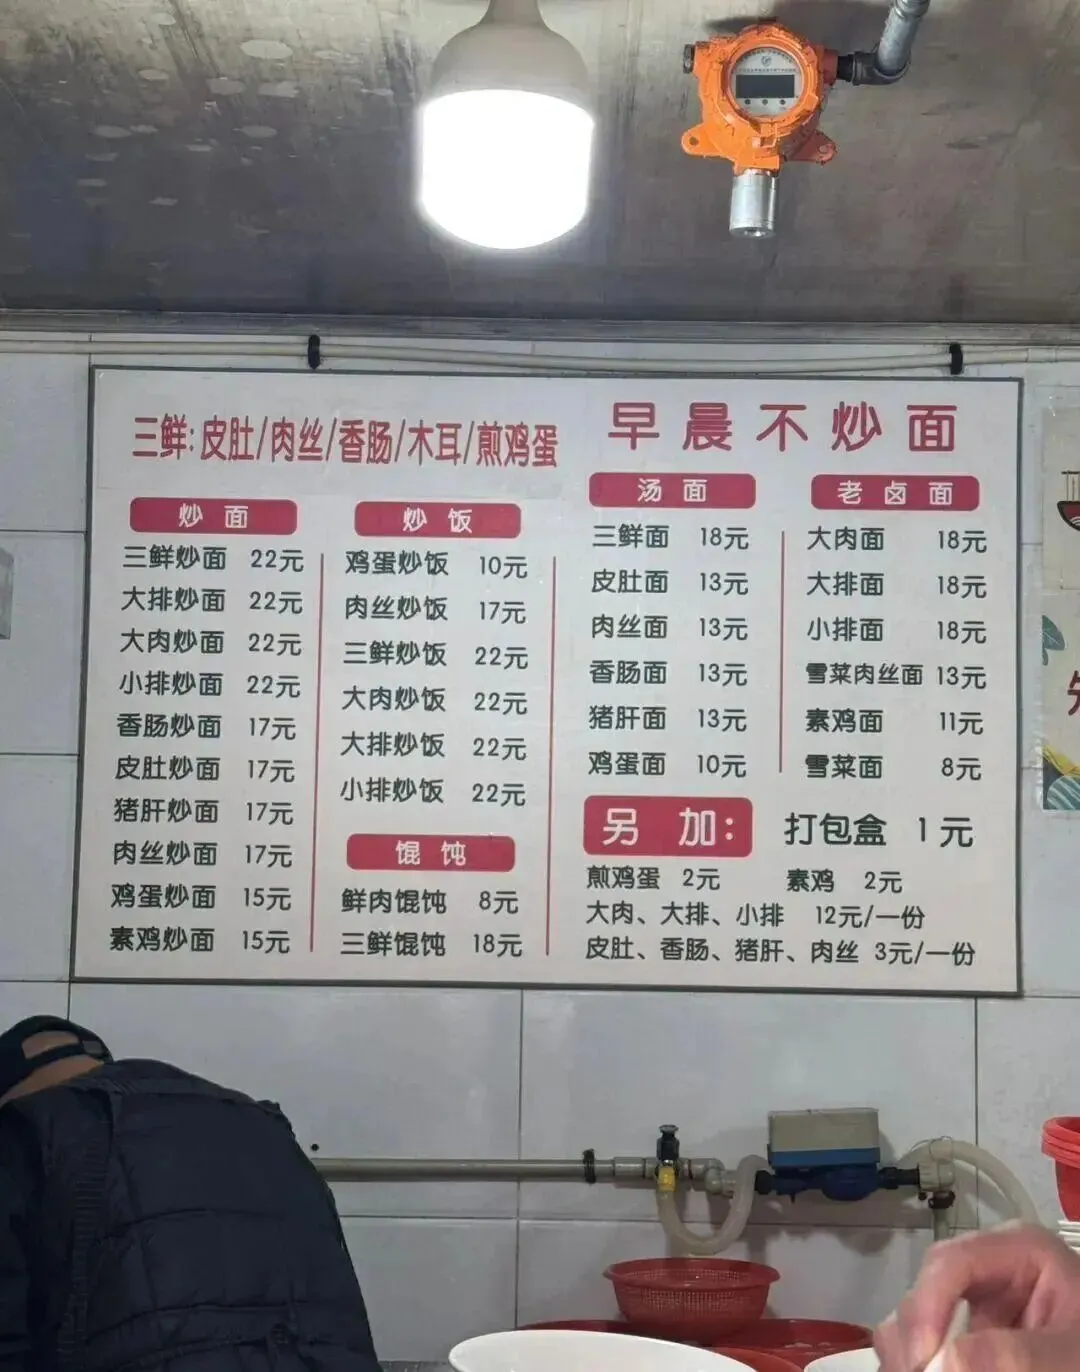 三鲜:皮肚/肉丝/香肠/木耳/煎鸡蛋
早晨不炒面
炒面
三鲜炒面 22元
大排炒面 22元
大肉炒面 22元
小排炒面 22元
香肠炒面 17元
皮肚炒面 17元
猪肝炒面 17元
肉丝炒面 17元
鸡蛋炒面 15元
素鸡炒面 15元
炒饭
鸡蛋炒饭 10元
肉丝炒饭 17元
三鲜炒饭 22元
大肉炒饭 22元
大排炒饭 22元
小排炒饭 22元
馄饨
鲜肉馄饨 8元
三鲜馄饨 18元
汤面
三鲜面 18元
皮肚面 13元
肉丝面 13元
香肠面 13元
猪肝面 13元
鸡蛋面 10元
老卤面
大肉面 18元
大排面 18元
小排面 18元
雪菜肉丝面 13元
素鸡面 11元
雪菜面 8元
另加: 打包盒 1元
煎鸡蛋 2元 素鸡 2元
大肉、大排、小排 12元/一份
皮肚、香肠、猪肝、肉丝 3元/一份